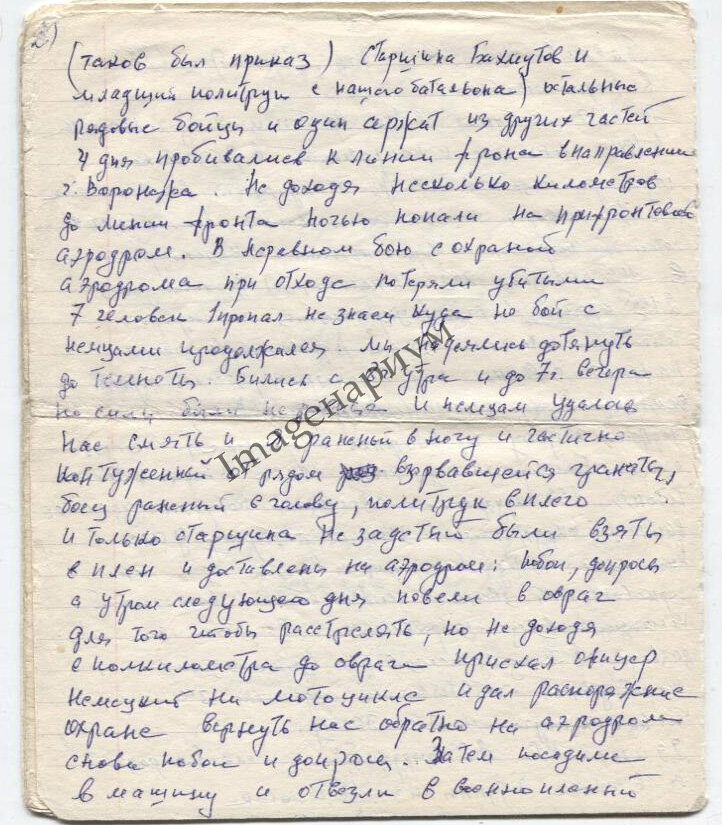 2)
(таков был приказ) старшина Бахмутов и
младший политрук с нашего батальона) остальные
рядовые бойцы и один сержат из других частей
4 дня пробивались к линии фрона внаправлении
г. Воронежа. Не доходя несколько километров
до линии фронта ночью попали на прифронтовой
аэродром. В неравном бою с охраной
аэродрома при отходе потеряли убитыми
7 человек 1 пропал не знаем куда но бой с
немцами продолжался. мы надеялись дотянуть
до темноты. Бились с утра и до 7 г. вечера
но силы были не и немцам удалось
нас смять и я раненый в ногу и частично
контуженный от рядом взорвавшейся гранаты,
боец раненый в голову, политрук в плечо
и только старшина не задетый были взяты
в плен и доставлены на аэродром: побои, допросы
а утром следующего дня повели в овраг
для того чтобы расстрелять, но не доходя
с полкилометра до оврага приехал офицер
немецкий на мотоцикле и дал распоряжение
охране вернуть нас обратно на аэродром
снова побои и допросы. Затем посадили
в машину и отвезли в военнопленный
Imagенариум